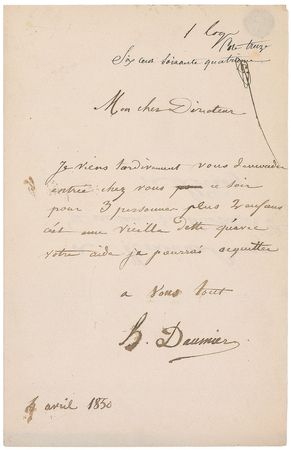 1 loge
Six cent soixante quatorze
Mon cher Directeur
Je viens tardivement vous demander
entrée chez vous pour ce soir
pour 3 personnes plus 2 enfans
c'est une vieille dette qu'avec
votre aide je pourrai acquitter
a vous tout
h. Daumier
4 avril 1850